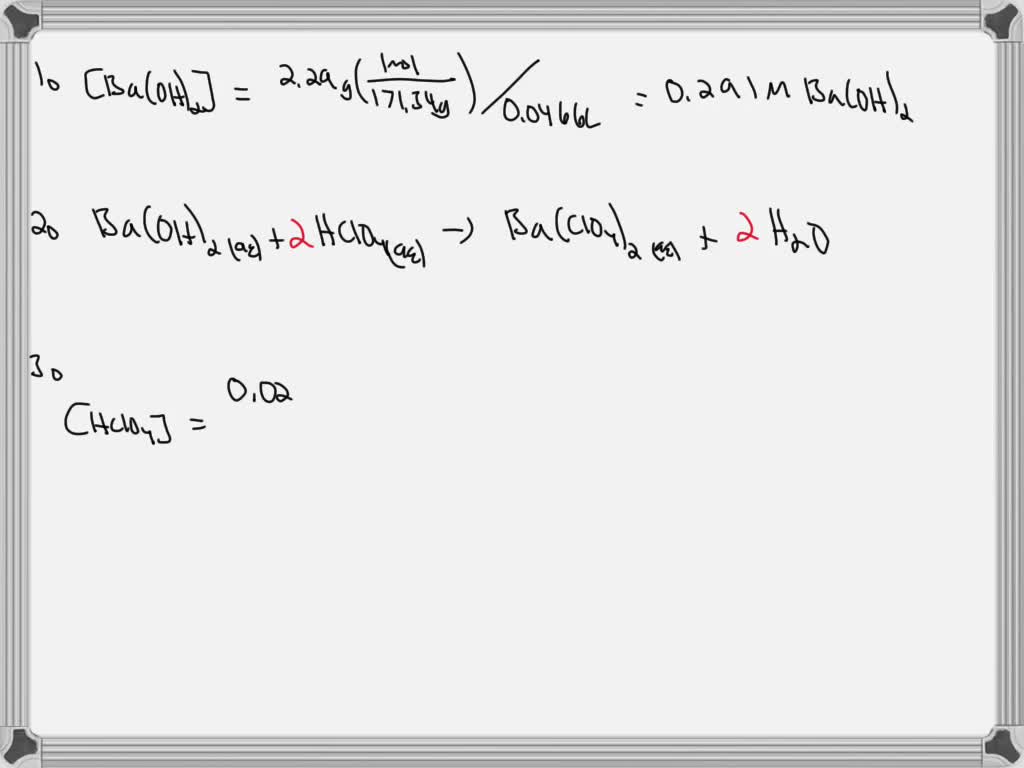 1. [Ba(OH)₂] = 2.29g(1mol/171.34g)/0.0466L = 0.291M Ba(OH)₂
2. Ba(OH)₂(aq) + 2HClO₄(aq) → Ba(ClO₄)₂(aq) + 2H₂O
3.
[HClO₄] = 0.02